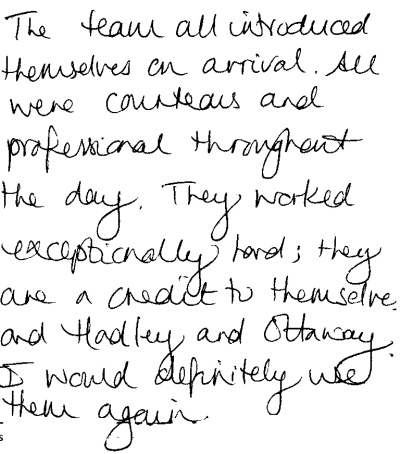 The team all introduced
themselves on arrival. All
were courteous and
professional throughout
the day. They worked
exceptionally hard; they
are a credit to themselve
and Hadley and Ottaway.
I would definitely use
them again.
s